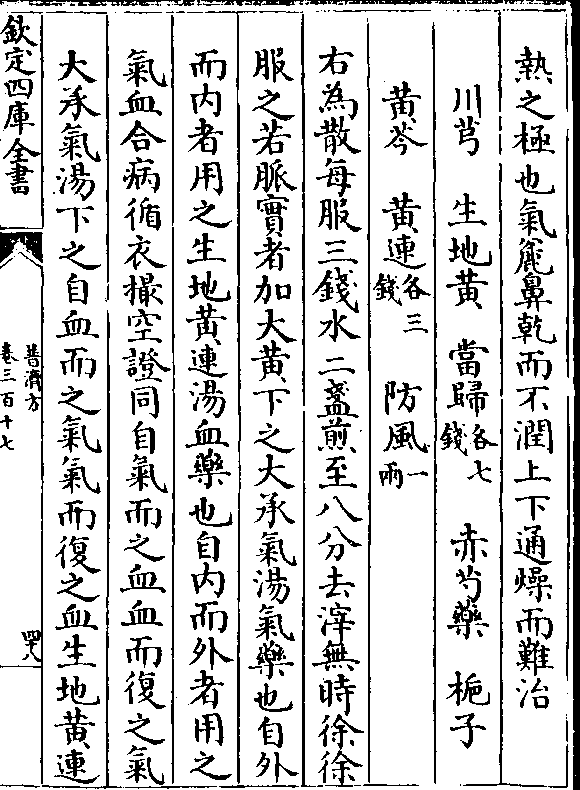 熱之極也氣麄鼻乾而不潤上下通燥而難治
川芎　生地黄　當歸各七錢　赤芍藥　梔子
黄芩　黄連各三錢　防風一兩
右為散每服三錢水二盞煎至八分去滓無時徐徐
服之若脈實者加大黄下之大承氣湯氣藥也自外
而内者用之生地黄連湯血藥也自内而外者用之
氣血合病循衣撮空證同自氣而之血血而復之氣
大承氣湯下之自血而之氣氣而復之血生地黄連
欽定四庫全書
普濟方
卷三百十七
四八